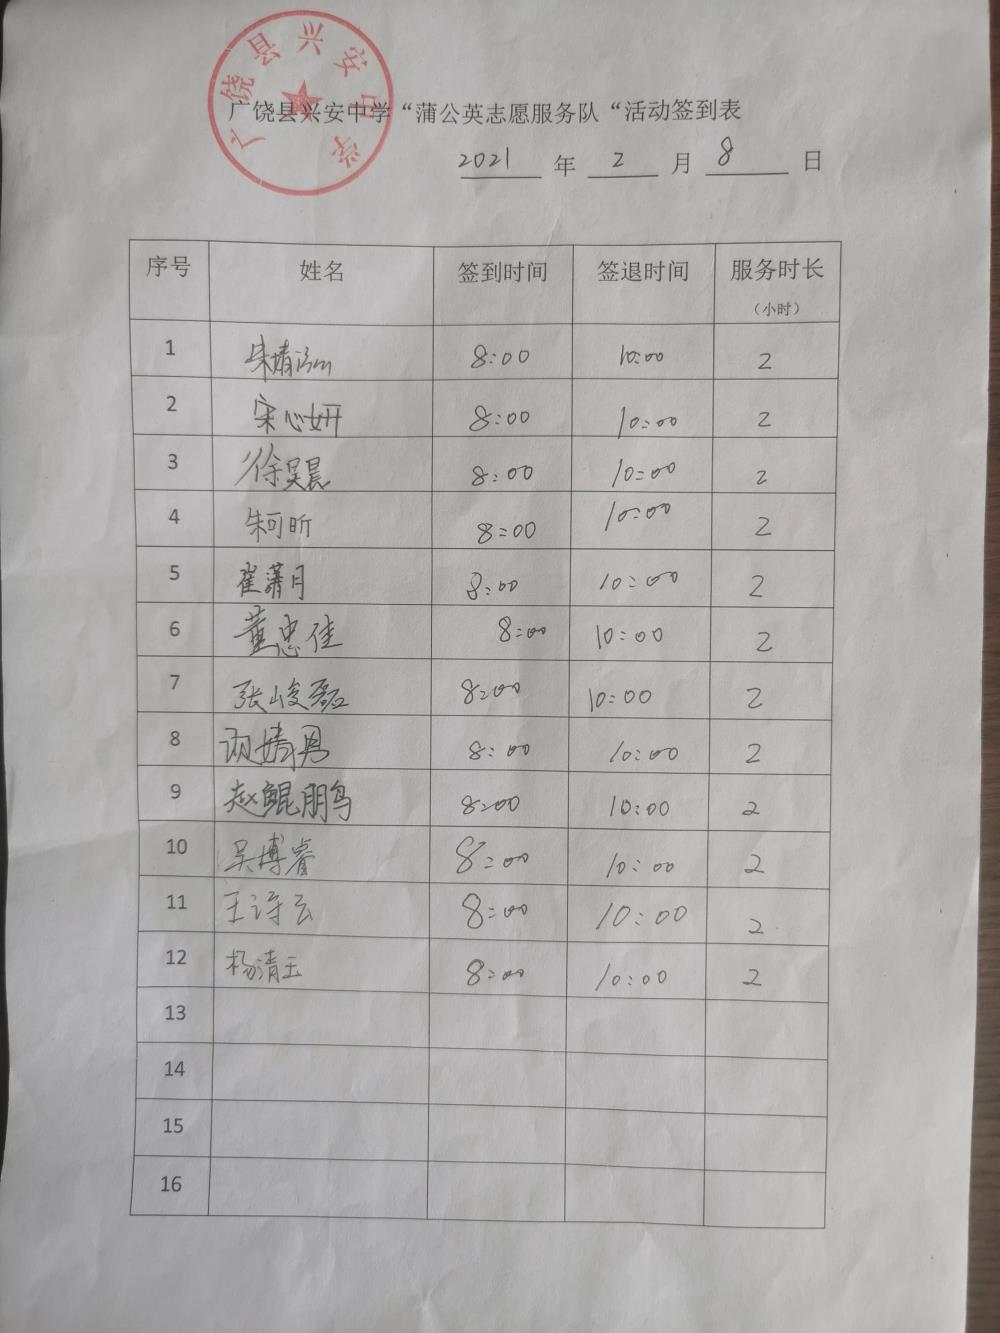 广饶县兴安中学
广饶县兴安中学“蒲公英志愿服务队“活动签到表
2021 年 2 月 8 日
序号 姓名 签到时间 签退时间 服务时长
（小时）
1 朱婧泓 8:00 10:00 2
2 宋心妍 8:00 10:00 2
3 徐昊晨 8:00 10:00 2
4 朱可昕 8:00 10:00 2
5 崔潇月 8:00 10:00 2
6 董忠佳 8:00 10:00 2
7 张峻磊 8:00 10:00 2
8 8:00 10:00 2
9 赵鲲鹏 8:00 10:00 2
10 吴博睿 8:00 10:00 2
11 王诗云 8:00 10:00 2
12 杨清玉 8:00 10:00 2
13
14
15
16